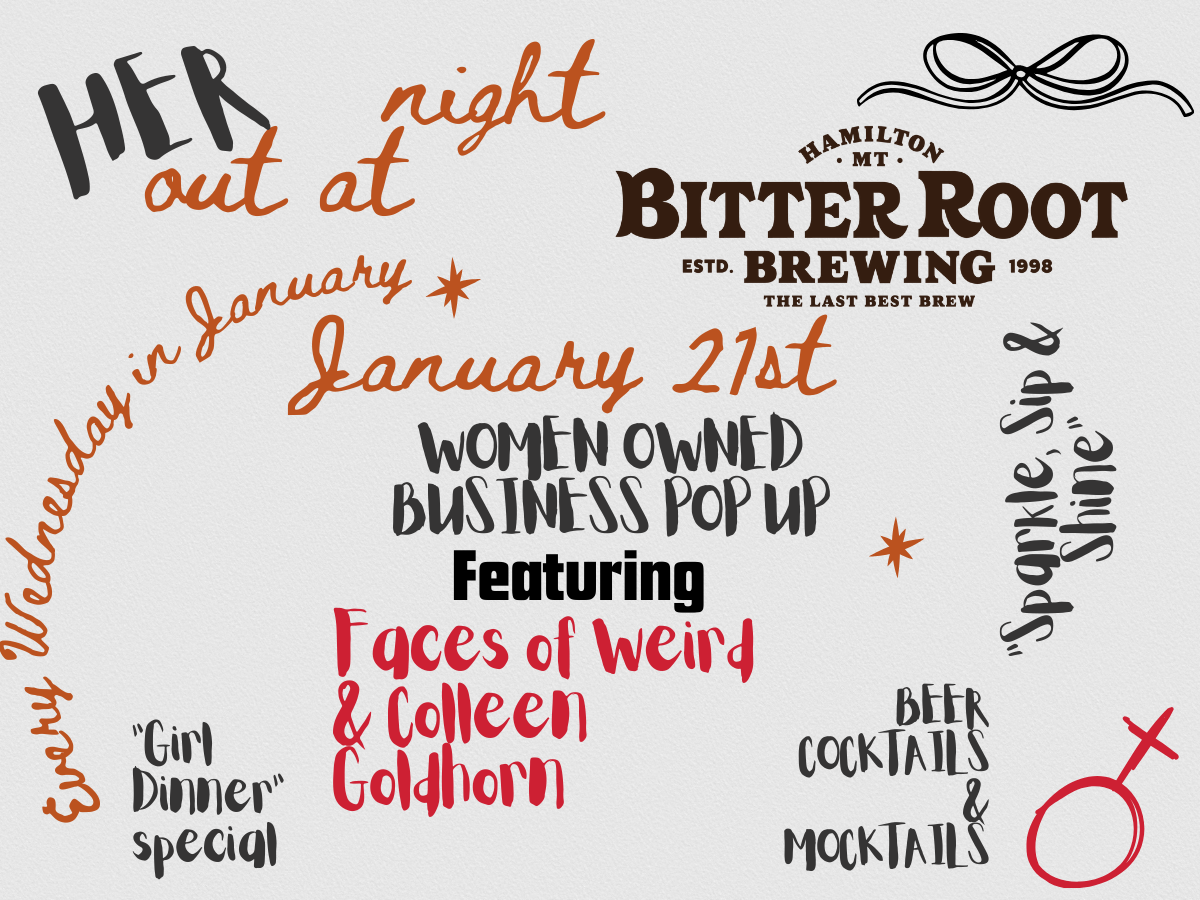 HER night
out at
HAMILTON
· MT ·
BITTER ROOT
ESTD. BREWING 1998
THE LAST BEST BREW
Every Wednesday in January
January 21st
WOMEN OWNED
BUSINESS POP UP
Featuring
Faces of Weird
& Colleen
Goldhorn
"Sparkle, Sip &
Shine"
"Girl
Dinner"
special
BEER
COCKTAILS
&
MOCKTAILS